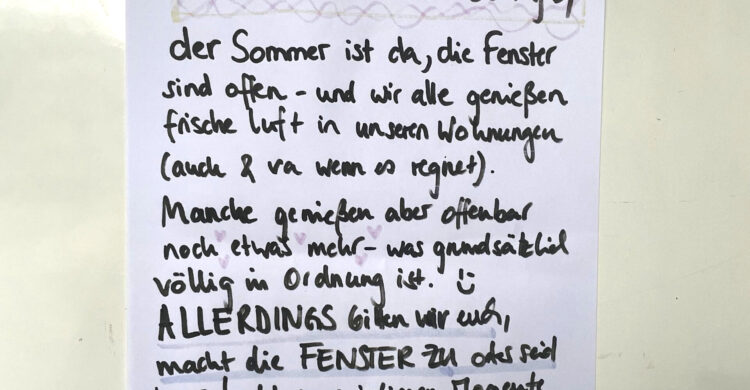 der Sommer ist da, die Fenster
sind offen - und wir alle genießen
frische Luft in unseren Wohnungen
(auch & va wenn es regnet).
Manche genießen aber offenbar
noch etwas mehr - was grundsätzlich
völlig in Ordnung ist. :)
ALLERDINGS bitten wir euch,
macht die FENSTER ZU oder seid